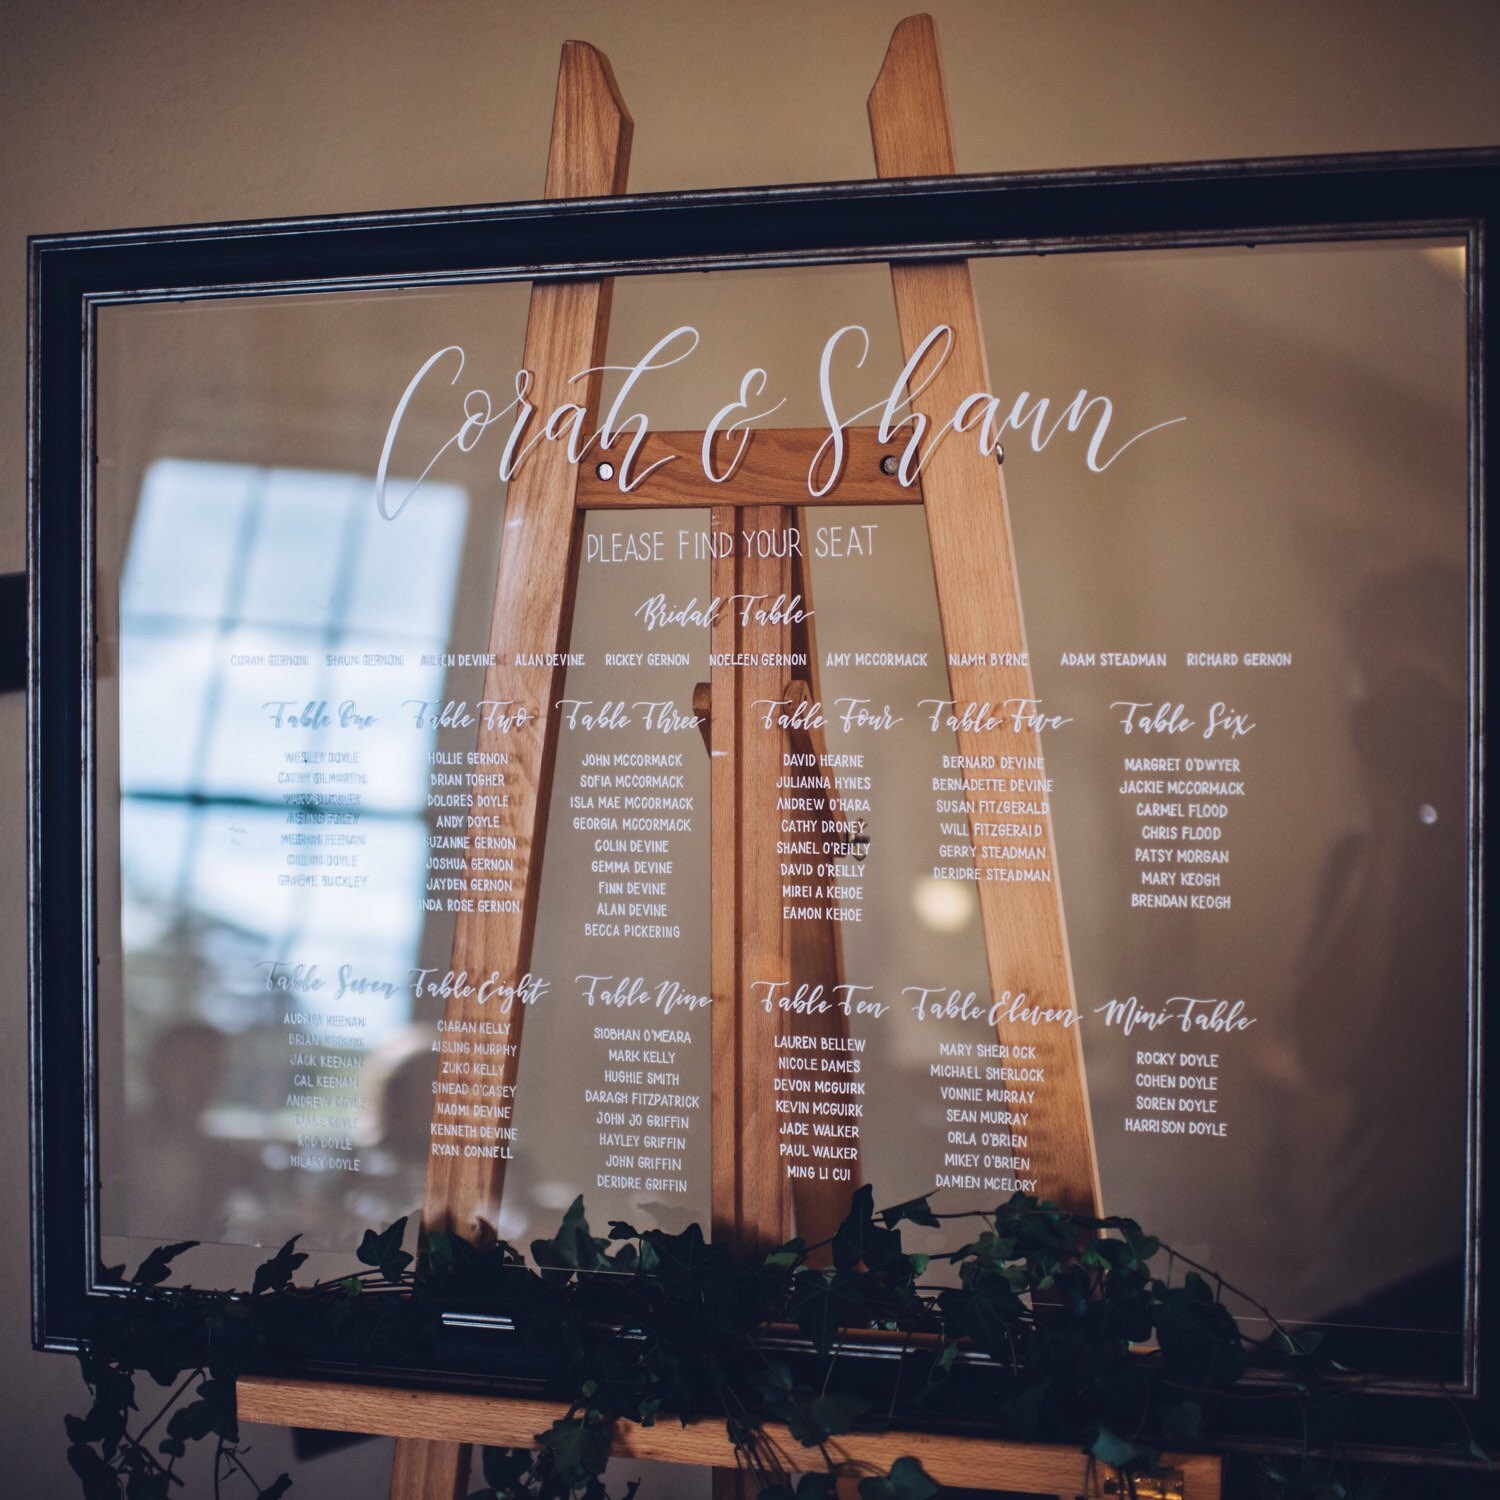 Corah & Shaun
PLEASE FIND YOUR SEAT
Bridal Table
CORAH GERNON SHAUN GERNON AILEEN DEVINE ALAN DEVINE RICKEY GERNON NOELEEN GERNON AMY MCCORMACK NIAMH BYRNE ADAM STEADMAN RICHARD GERNON
Table One
WESLEY DOYLE
CATHY GILMARTIN
MEGHAN KEENAN
DOYLE
GRAEME BUCKLEY
Table Two
HOLLIE GERNON
BRIAN TOGHER
DOLORES DOYLE
ANDY DOYLE
SUZANNE GERNON
JOSHUA GERNON
JAYDEN GERNON
INDA ROSE GERNON
Table Three
JOHN MCCORMACK
SOFIA MCCORMACK
ISLA MAE MCCORMACK
GEORGIA MCCORMACK
COLIN DEVINE
GEMMA DEVINE
FINN DEVINE
ALAN DEVINE
BECCA PICKERING
Table Four
DAVID HEARNE
JULIANNA HYNES
ANDREW O'HARA
CATHY DRONEY
SHANEL O'REILLY
DAVID O'REILLY
MIREIA KEHOE
EAMON KEHOE
Table Five
BERNARD DEVINE
BERNADETTE DEVINE
SUSAN FITZGERALD
WILL FITZGERALD
GERRY STEADMAN
DERIDRE STEADMAN
Table Six
MARGRET O'DWYER
JACKIE MCCORMACK
CARMEL FLOOD
CHRIS FLOOD
PATSY MORGAN
MARY KEOGH
BRENDAN KEOGH
Table Seven
AUDREY KEENAN
BRIAN KEENAN
JACK KEENAN
CAL KEENAN
ANDREW DOYLE
DOYLE
ROD DOYLE
HILARY DOYLE
Table Eight
CIARAN KELLY
AISLING MURPHY
ZUKO KELLY
SINEAD O'CASEY
NAOMI DEVINE
KENNETH DEVINE
RYAN CONNELL
Table Nine
SIOBHAN O'MEARA
MARK KELLY
HUGHIE SMITH
DARAGH FITZPATRICK
JOHN JO GRIFFIN
HAYLEY GRIFFIN
JOHN GRIFFIN
DERIDRE GRIFFIN
Table Ten
LAUREN BELLEW
NICOLE DAMES
DEVON MCGUIRK
KEVIN MCGUIRK
JADE WALKER
PAUL WALKER
MING LI CUI
Table Eleven
MARY SHERLOCK
MICHAEL SHERLOCK
VONNIE MURRAY
SEAN MURRAY
ORLA O'BRIEN
MIKEY O'BRIEN
DAMIEN MCELORY
Mini Table
ROCKY DOYLE
COHEN DOYLE
SOREN DOYLE
HARRISON DOYLE